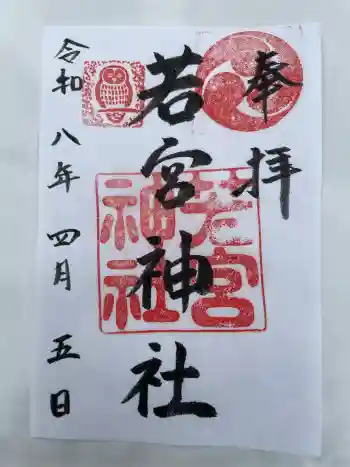 奉拝
若宮神社
若宮
神社
令和八年四月五日